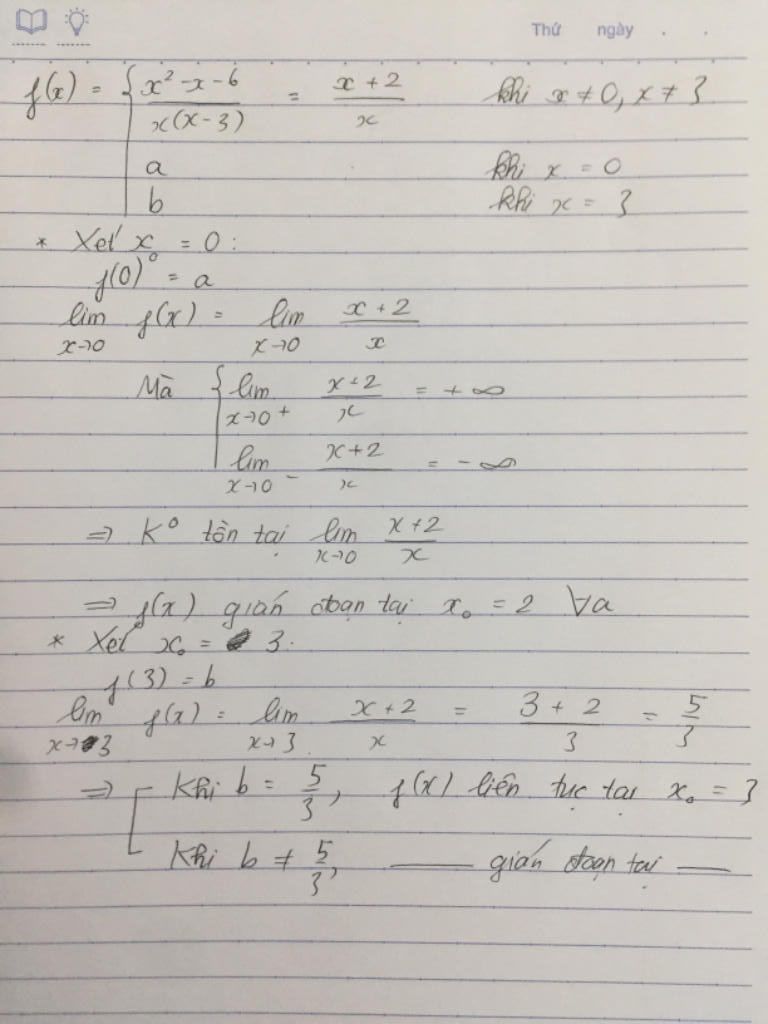 Thứ ngày . .
f(x) = { (x² - x - 6)/(x(x - 3)) = (x + 2)/x khi x ≠ 0, x ≠ 3
a khi x = 0
b khi x = 3
* Xét x₀ = 0 :
f(0) = a
lim_{x→0} f(x) = lim_{x→0} (x + 2)/x
Mà { lim_{x→0⁺} (x + 2)/x = + ∞
lim_{x→0⁻} (x + 2)/x = - ∞
⇒ K⁰ tồn tại lim_{x→0} (x + 2)/x
⇒ f(x) gián đoạn tại x₀ = 2 ∀a
* Xét x₀ = 3.
f(3) = b
lim_{x→3} f(x) = lim_{x→3} (x + 2)/x = (3 + 2)/3 = 5/3
⇒ [ Khi b = 5/3, f(x) liên tục tại x₀ = 3
Khi b ≠ 5/3, —— gián đoạn tại ——